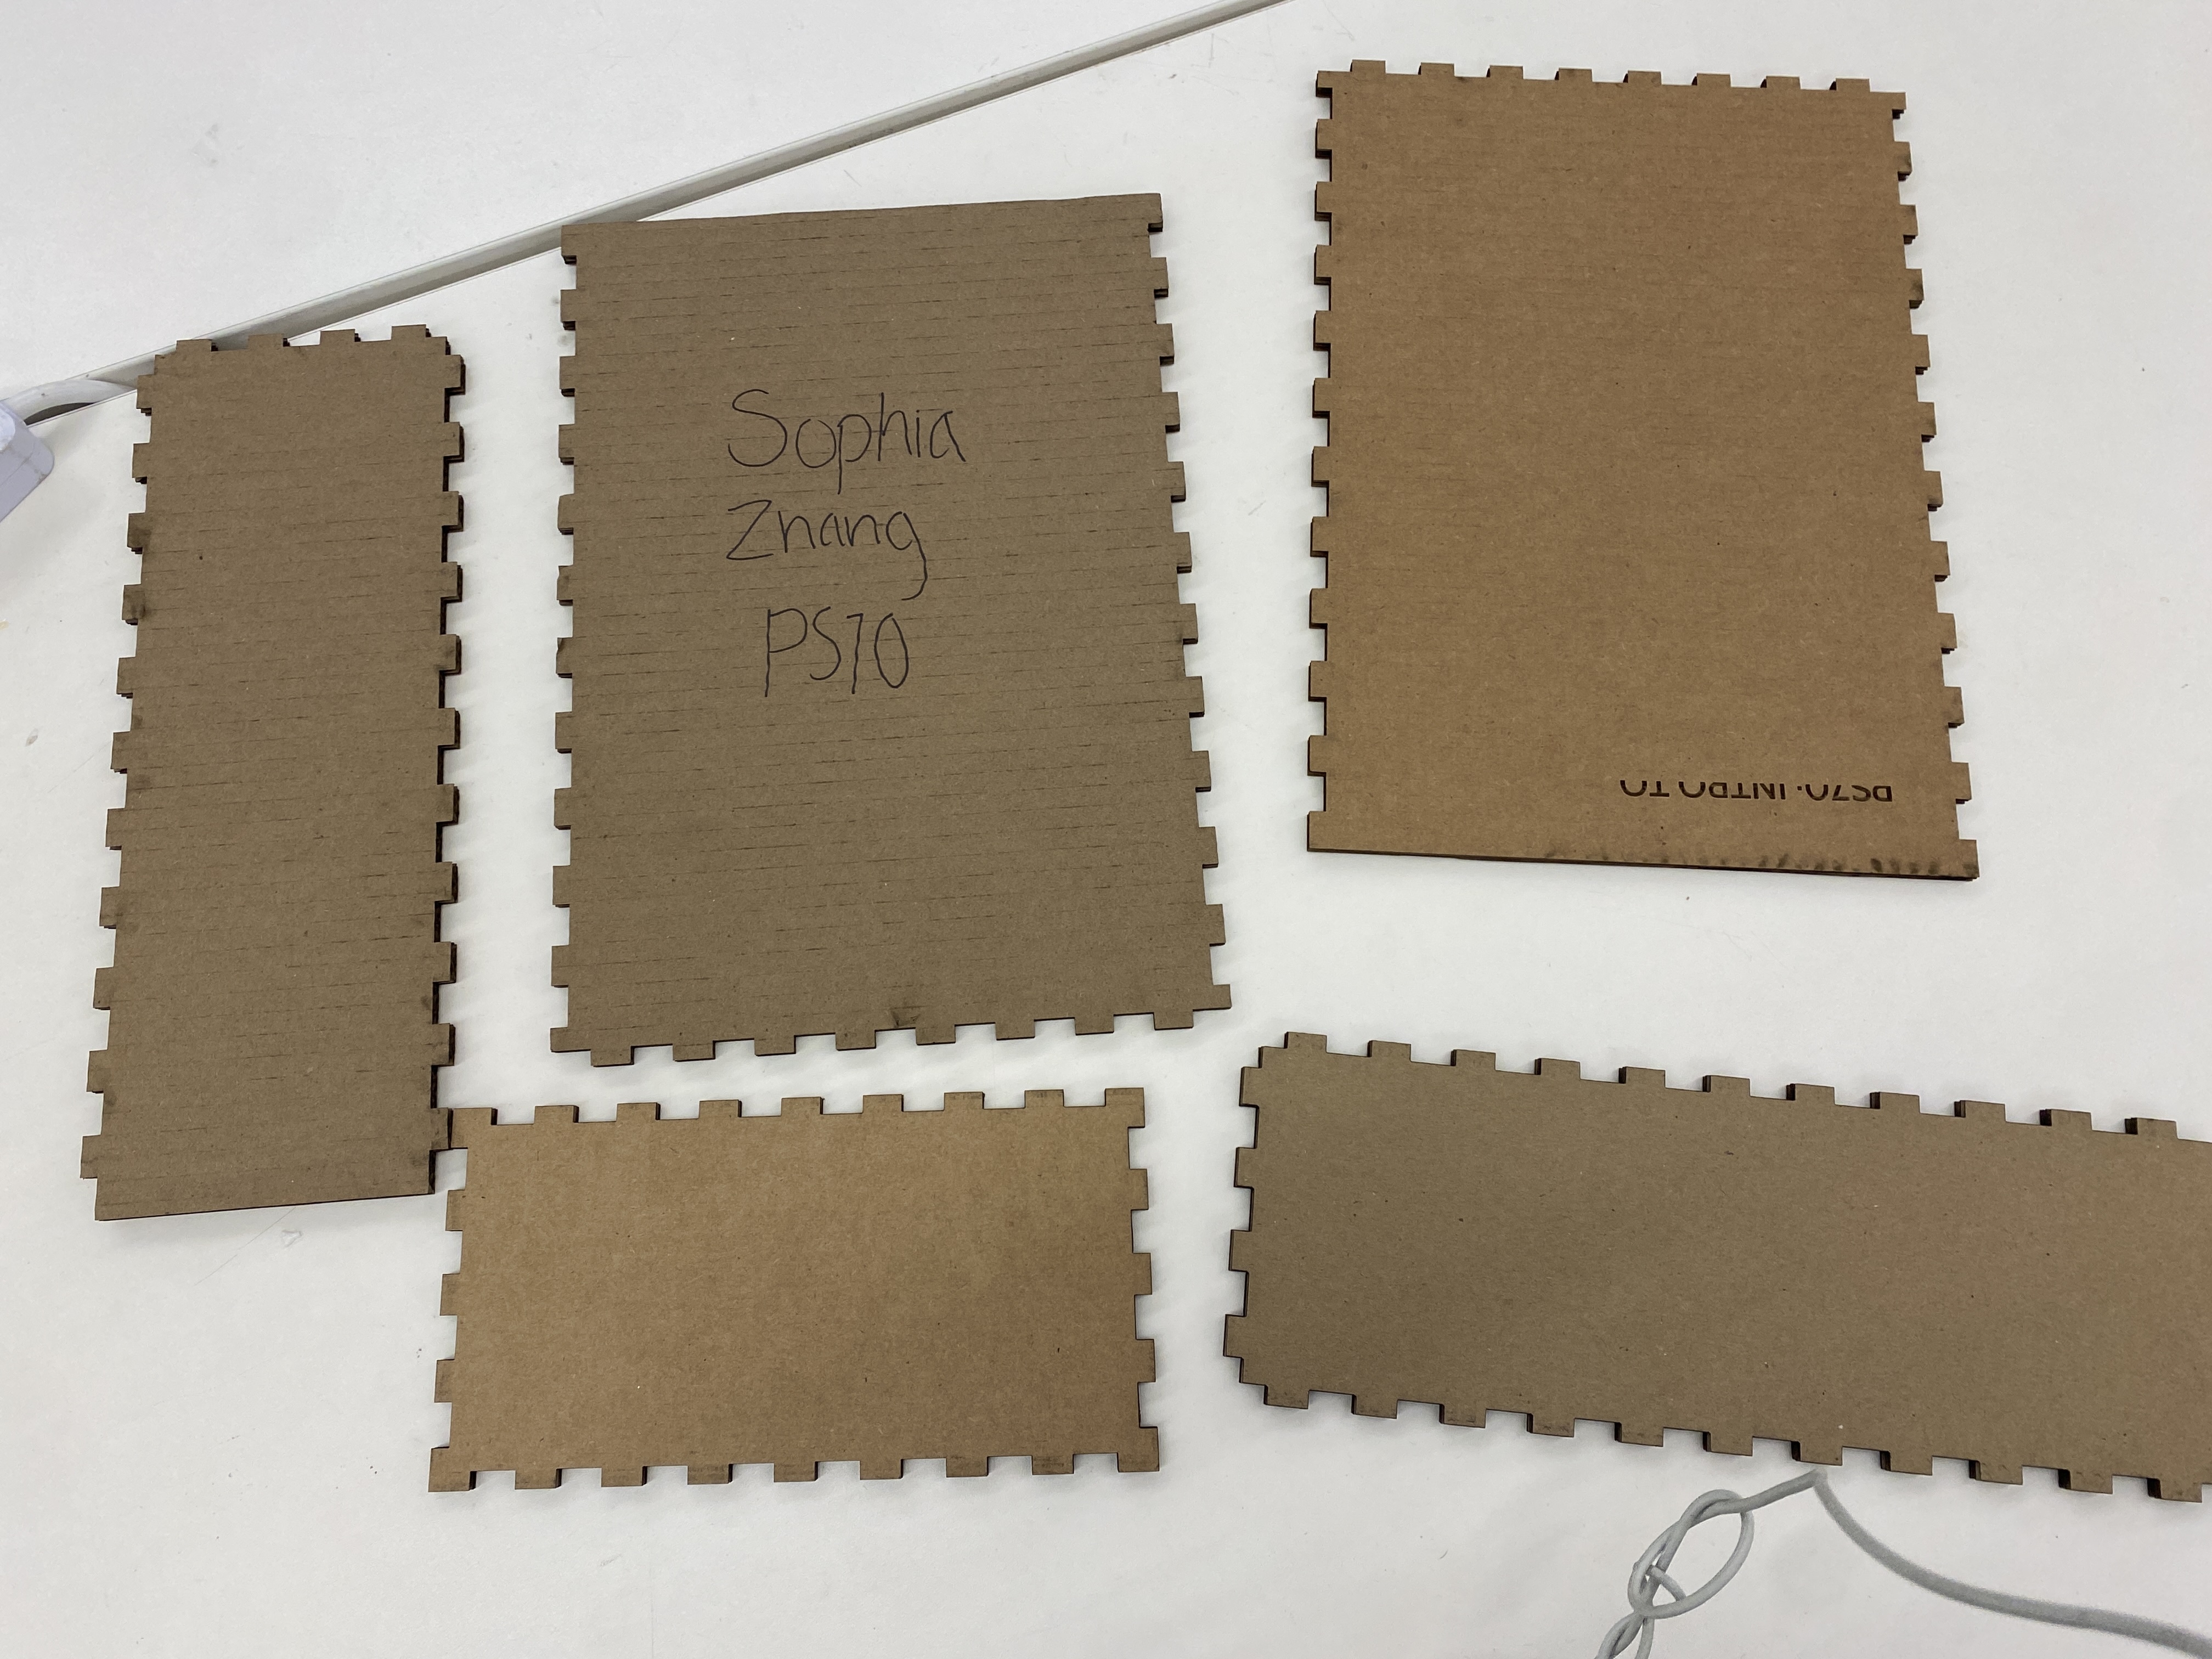 Sophia
Zhang
PS70
PS70: INTRO TO